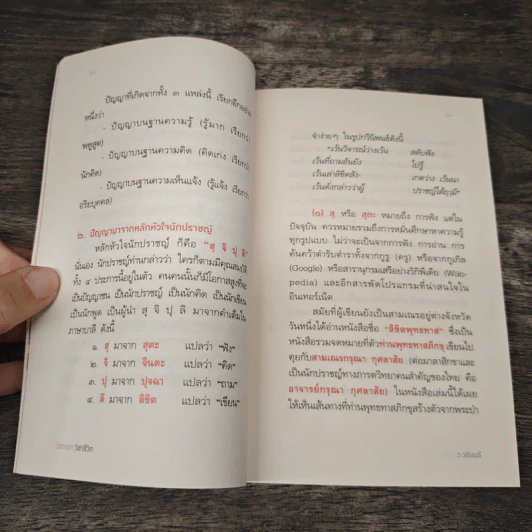 ปัญญาที่เกิดจากทั้ง ๓ แหล่งนี้ เรียกอีกอย่าง
หนึ่งว่า
- ปัญญาบนฐานความรู้ (รู้มาก เรียกว่า
พหูสูต)
- ปัญญาบนฐานความคิด (คิดเก่ง เรียกว่า
นักคิด)
- ปัญญาบนฐานความเห็นแจ้ง (รู้แจ้ง เรียกว่า
อริยบุคคล)
๒. ปัญญามาจากหลักหัวใจนักปราชญ์
หลักหัวใจนักปราชญ์ ก็คือ "สุ จิ ปุ ลิ"
นั่นเอง นักปราชญ์ท่านกล่าวว่า ใครก็ตามมีคุณสมบัติ
ทั้ง ๔ ประการนี้อยู่ในตัว คนคนนั้นก็มีโอกาสสูงที่จะ
เป็นปัญญาชน เป็นนักปราชญ์ เป็นนักคิด เป็นนักเขียน
เป็นนักพูด เป็นผู้นำ สุ จิ ปุ ลิ มาจากคำเต็มใน
ภาษาบาลี ดังนี้
๑. สุ มาจาก สุตะ แปลว่า "ฟัง"
๒. จิ มาจาก จินตะ แปลว่า "คิด"
๓. ปุ มาจาก ปุจฉา แปลว่า "ถาม"
๔. ลิ มาจาก ลิขิต แปลว่า "เขียน"
วิชาชีวิต
จำง่ายๆ ในรูปกวีนิพนธ์ดังนี้
"เว้นวิจารณ์ว่างเว้น สดับฟัง
เว้นที่ถามอันยัง ไป่รู้
เว้นเล่าลิขิตสัง- เกตว่าง เว้นนา
เว้นดังกล่าวว่าผู้ ปราชญ์ได้ฤามี"
(๑) สุ หรือ สุตะ หมายถึง การฟัง แต่ใน
ปัจจุบัน ควรหมายรวมถึงการหมั่นศึกษาหาความรู้
ทุกรูปแบบ ไม่ว่าจะเป็นจากการฟัง การอ่าน การ
ค้นคว้าตำรับตำราทั้งจากกูรู (ครู) หรือจากกูเกิล
(Google) หรือสารานุกรมเสรีอย่างวิกิพีเดีย (Wiki-
pedia) และอีกสารพัดโปรแกรมที่น่าสนใจใน
อินเทอร์เน็ต
สมัยที่ผู้เขียนยังเป็นสามเณรอยู่ต่างจังหวัด
วันหนึ่งได้อ่านหนังสือชื่อ "ลิขิตพุทธทาส" ซึ่งเป็น
หนังสือรวมจดหมายที่ตัวท่านพุทธทาสภิกขุเขียนไป
คุยกับสามเณรกรุณา กุศลาสัย (ต่อมาลาสิกขาและ
เป็นนักปราชญ์ทางภารตวิทยาคนสำคัญของไทย คือ
อาจารย์กรุณา กุศลาสัย) ในหนังสือเล่มนี้ได้เผย
ให้เห็นเส้นทางที่ท่านพุทธทาสภิกขุสร้างตัวจากพระป่า
ว.วชิรเมธี